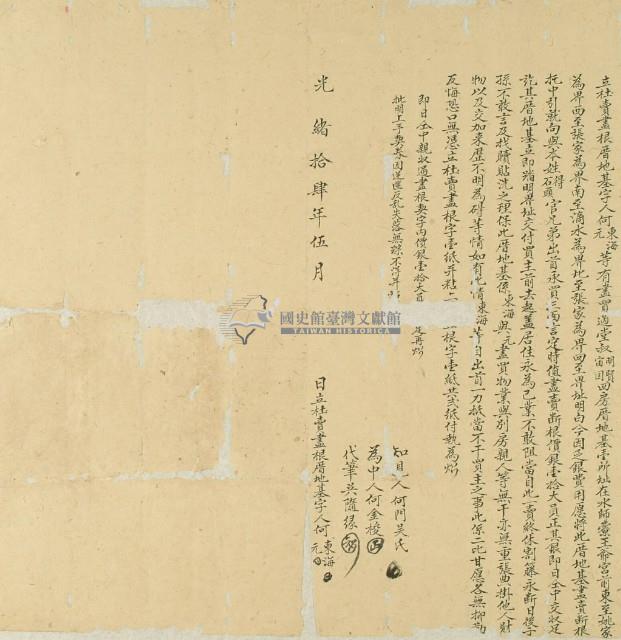 立杜賣盡根厝地基字人何東海元等有盡買過堂叔明賢宙因四房厝地基壹所址在水師藔王爺宮前東至姚家
為界西至張家為界南至滴水為界北至張家為界四至界址明白今因乏銀費用應將此厝地基盡賣斷根
托中引就向與本姓得石頭官兄弟出首承買三面言定時值盡賣斷根價銀壹拾大員正其銀即日仝中交收足
訖其厝地基立即踏明界址交付買主前去起蓋居住永為己業不敢阻當自此一賣終休割籐永斷日後子
孫不敢言及找贖貼洗之理保此厝地基係東海與元盡買物業與別房親人等無干亦無重張典掛他人財
物以及交加來歷不明為碍等情如有此情東海等自出首一力抵當不干買主之事此係二比甘愿各無抑勒
反悔恐口無憑立杜賣盡根字壹紙并粘上一根字壹紙共弍紙付執為炤
即日仝中親收過盡根契字內價銀壹拾大員足再炤
批明上手契券因逆匪反乱失落無踪不得并
光緒拾肆年伍月 日立杜賣盡根厝地基字人何東海元
知見人何門吳氏
為中人何金梭
代筆吳隨緣
國史館臺灣文獻館
TAIWAN HISTORICA